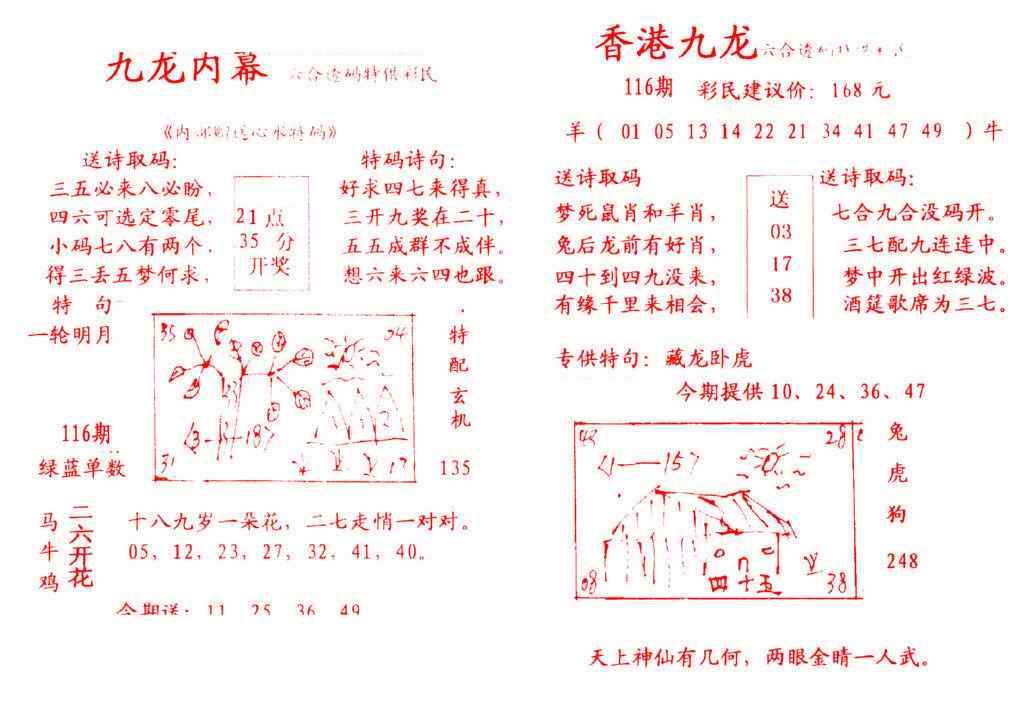 九龙内幕 六合透码特供彩民
送诗取码：
三五必来八必盼，
四六可选定零尾，
小码七八有两个．
得三丢五梦何求，
21点
35 分
开奖
特码诗句：
好求四七来得真，
三开九奖在二十，
五五成群不成伴。
想六来六四也跟。
特 句
一轮明月
116期
绿蓝单数
35
04
31
17
特
配
玄
机
135
马
牛
鸡
二六开花
十八九岁一朵花，二七走悄一对对。
05，12，23，27，32，41，40。
今期送：11 25 36 49
香港九龙
116期 彩民建议价：168 元
羊（ 01 05 13 14 22 21 34 41 47 49 ）牛
送诗取码
梦死鼠肖和羊肖，
兔后龙前有好肖，
四十到四九没来，
有缘千里来相会，
送
03
17
38
送诗取码：
七合九合没码开。
三七配九连连中。
梦中开出红绿波。
酒筵歌席为三七。
专供特句：藏龙卧虎
今期提供 10、24、36、47
28
08
38
四十五
兔
虎
狗
248
天上神仙有几何，两眼金睛一人武。